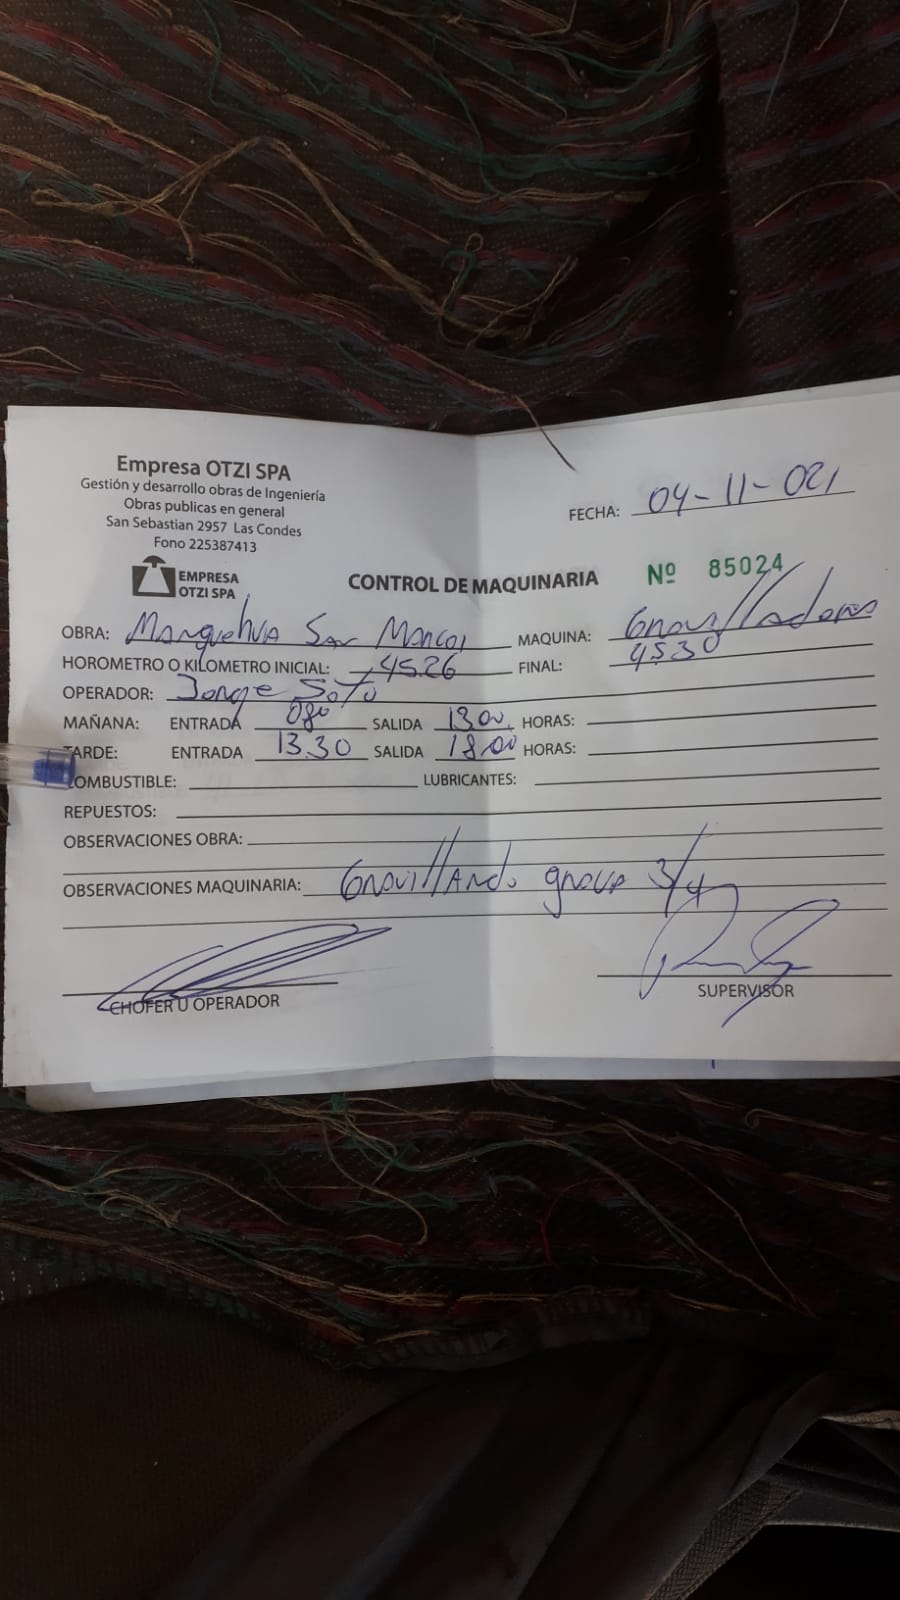 Empresa OTZI SPA
Gestión y desarrollo obras de Ingeniería
Obras publicas en general
San Sebastian 2957 Las Condes
Fono 225387413
FECHA: 04-11-021
EMPRESA
OTZI SPA
CONTROL DE MAQUINARIA Nº 85024
OBRA: Manquehua San Marcos MAQUINA: Gravilladora
HOROMETRO O KILOMETRO INICIAL: 4526 FINAL: 4530
OPERADOR: Jorge Soto
MAÑANA: ENTRADA 080 SALIDA 13.00 HORAS:
TARDE: ENTRADA 13.30 SALIDA 18.00 HORAS:
COMBUSTIBLE: LUBRICANTES:
REPUESTOS:
OBSERVACIONES OBRA:
OBSERVACIONES MAQUINARIA: Gravillando grava 3/4
CHOFER U OPERADOR SUPERVISOR